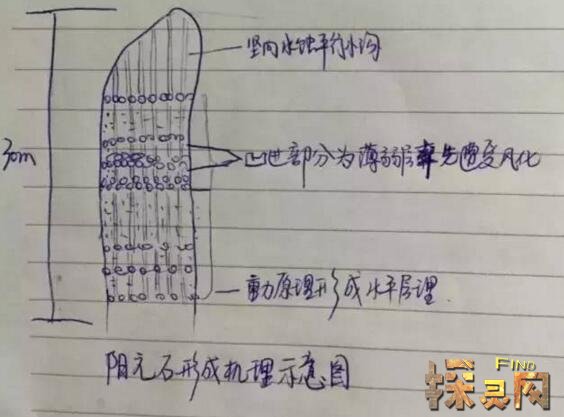 竖向水蚀平行水沟
30m
凹进部分为薄弱层率先遭受风化
重力原理形成水平层理.
阳元石形成机理示意图
FIND
探灵网